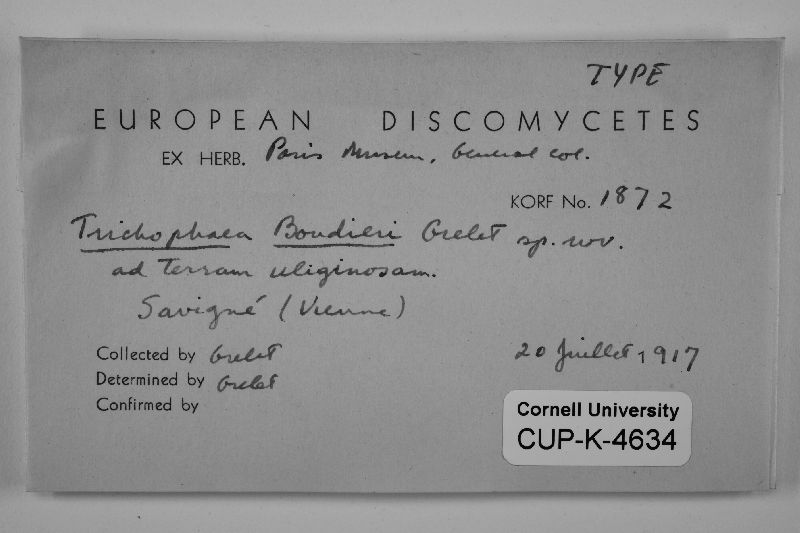 TYPE
EUROPEAN DISCOMYCETES
EX HERB. Paris Museum, General col.
KORF No. 1872
Trichophaea Boudieri Grelet sp. nov.
ad terram uliginosam.
Savigné (Vienne)
Collected by Grelet 20 Juillet, 1917
Determined by Grelet
Confirmed by
Cornell University
CUP-K-4634